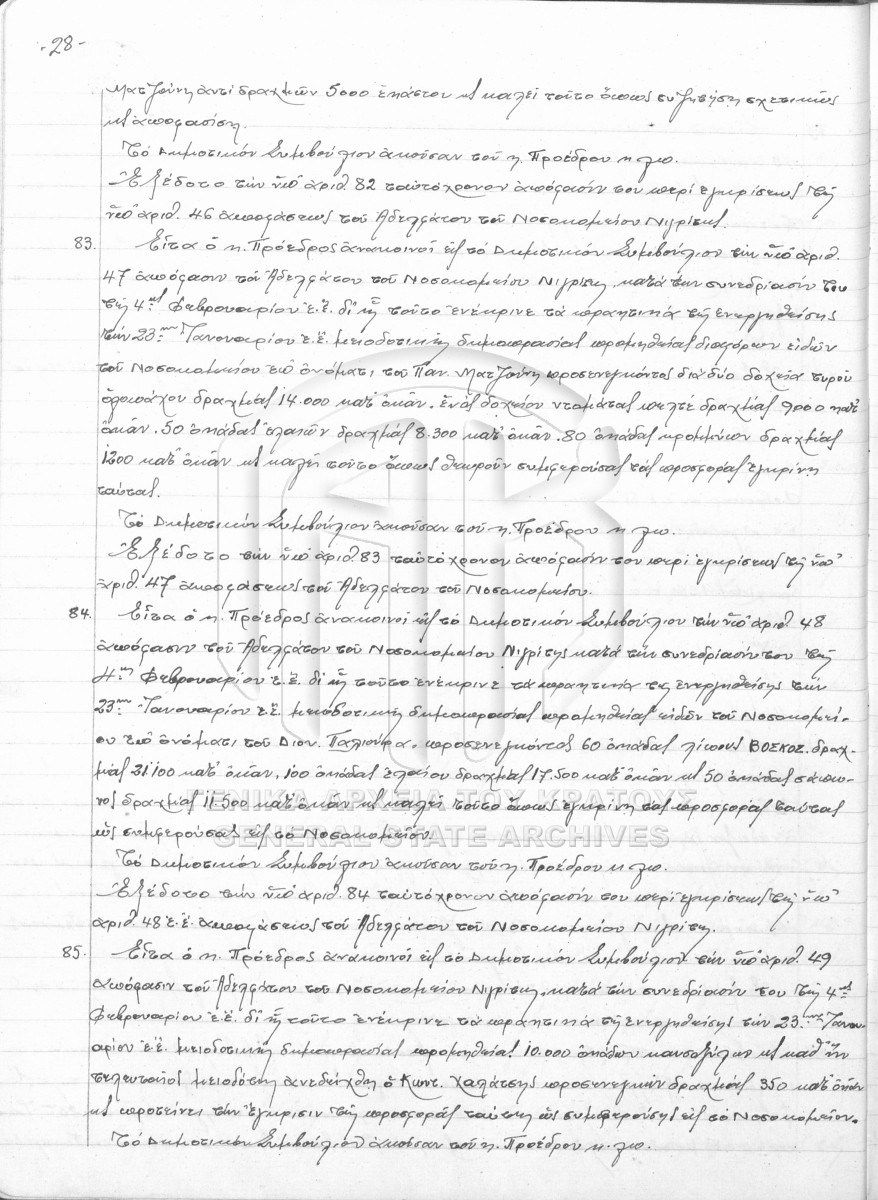 -28-
Ματζούνη ἀντί δραχμῶν 5000 ἑκάστου κ καλεῖ τοῦτο ὅπως συζητήσῃ σχετικῶς
κ ἀποφασίσῃ.
Τό Δημοτικόν Συμβούλιον ἀκοῦσαν τοῦ κ. Προέδρου κ λπ.
Ἐξέδοτο τήν ὑπ' ἀριθ. 82 ταὐτόχρονον ἀπόφασίν του περί ἐγκρίσεως τῆς
ὑπ' ἀριθ. 46 ἀποφάσεως τοῦ Ἀδελφάτου τοῦ Νοσοκομείου Νιγρίτης.
83. Εἶτα ὁ κ. Πρόεδρος ἀνακοινοῖ εἰς τό Δημοτικόν Συμβούλιον τήν ὑπ' ἀριθ.
47 ἀπόφασιν τοῦ Ἀδελφάτου τοῦ Νοσοκομείου Νιγρίτης, κατά τήν συνεδρίασίν του
τῆς 4ης Φεβρουαρίου ἐ.ἔ. δι' ἧς τοῦτο ἐνέκρινε τά πρακτικά τῆς ἐνεργηθείσης
τήν 23ην Ἰανουαρίου ἐ.ἔ. μειοδοτικῆς δημοπρασίας προμηθείας διαφόρων εἰδῶν
τοῦ Νοσοκομείου ἐπ' ὀνόματι τοῦ Παν. Ματζούνη προσενεγκόντος διά δύο δοχεῖα τυροῦ
ὁλοπάχου δραχμάς 14.000 κατ' ὀκᾶν. ἑνός δοχείου ντομάτας πελτέ δραχμάς 9000 κατ'
ὀκᾶν. 50 ὀκάδας ἐλαιῶν δραχμάς 8.300 κατ' ὀκᾶν. 80 ὀκάδας κρομμύων δραχμάς
1200 κατ' ὀκᾶν κ καλεῖ τοῦτο ὅπως θεωροῦν συμφερούσας τάς προσφοράς ἐγκρίνῃ
ταύτας.
Τό Δημοτικόν Συμβούλιον ἀκοῦσαν τοῦ κ. Προέδρου κ λπ.
Ἐξέδοτο τήν ὑπ' ἀριθ. 83 ταὐτόχρονον ἀπόφασίν του περί ἐγκρίσεως τῆς ὑπ'
ἀριθ. 47 ἀποφάσεως τοῦ Ἀδελφάτου τοῦ Νοσοκομείου.
84. Εἶτα ὁ κ. Πρόεδρος ἀνακοινοῖ εἰς τό Δημοτικόν Συμβούλιον τήν ὑπ' ἀριθ. 48
ἀπόφασιν τοῦ Ἀδελφάτου τοῦ Νοσοκομείου Νιγρίτης κατά τήν συνεδρίασίν του τῆς
4ης Φεβρουαρίου ἐ.ἔ. δι' ἧς τοῦτο ἐνέκρινε τά πρακτικά τῆς ἐνεργηθείσης τήν
23ην Ἰανουαρίου ἐ.ἔ. μειοδοτικῆς δημοπρασίας προμηθείας εἰδῶν τοῦ Νοσοκομεί-
ου ἐπ' ὀνόματι τοῦ Διον. Παλιούρα, προσενεγκόντος 60 ὀκάδας λίπους ΒΟΣΚΟΖ. δραχ-
μάς 21.100 κατ' ὀκᾶν, 100 ὀκάδας ἐλαίου δραχμάς 17.500 κατ' ὀκᾶν κ 50 ὀκάδας σάπω-
νος δραχμάς 11.500 κατ' ὀκᾶν κ καλεῖ τοῦτο ὅπως ἐγκρίνῃ τάς προσφοράς ταύτας
ὡς συμφερούσας εἰς τό Νοσοκομεῖον.
ΓΕΝΙΚΑ ΑΡΧΕΙΑ ΤΟΥ ΚΡΑΤΟΥΣ
GENERAL STATE ARCHIVES
Τό Δημοτικόν Συμβούλιον ἀκοῦσαν τοῦ κ. Προέδρου κ λπ.
Ἐξέδοτο τήν ὑπ' ἀριθ. 84 ταὐτόχρονον ἀπόφασίν του περί ἐγκρίσεως τῆς ὑπ'
ἀριθ. 48 ἐ.ἔ. ἀποφάσεως τοῦ Ἀδελφάτου τοῦ Νοσοκομείου Νιγρίτης.
85. Εἶτα ὁ κ. Πρόεδρος ἀνακοινοῖ εἰς τό Δημοτικόν Συμβούλιον τήν ὑπ' ἀριθ. 49
ἀπόφασιν τοῦ Ἀδελφάτου τοῦ Νοσοκομείου Νιγρίτης, κατά τήν συνεδρίασίν του τῆς 4ης
Φεβρουαρίου ἐ.ἔ. δι' ἧς τοῦτο ἐνέκρινε τά πρακτικά τῆς ἐνεργηθείσης τήν 23ην Ἰανου-
αρίου ἐ.ἔ. μειοδοτικῆς δημοπρασίας προμηθείας 10.000 ὀκάδων καυσοξύλων κ καθ' ἥν
τελευταῖος μειοδότης ἀνεδείχθη ὁ Κωνστ. Χαλάτσης προσενεγκών δραχμάς 350 κατ' ὀκᾶν
κ προτείνει τήν ἔγκρισιν τῆς προσφορᾶς ταύτης ὡς συμφερούσης εἰς τό Νοσοκομεῖον.
Τό Δημοτικόν Συμβούλιον ἀκοῦσαν τοῦ κ. Προέδρου κ. λπ.